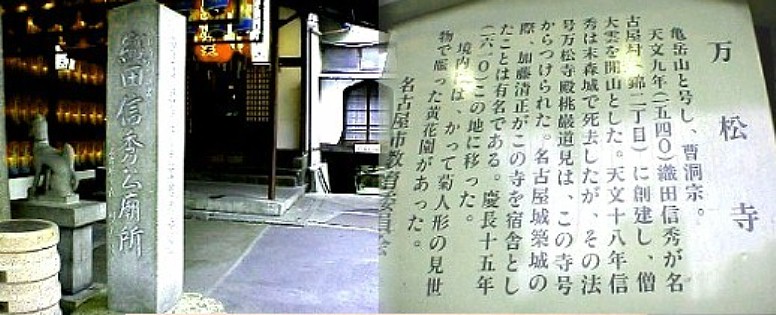 織田信秀公廟所
万松寺
亀岳山と号し、曹洞宗。
天文九年(一五四〇)織田信秀が名
古屋村(錦二丁目)に創建し、僧
大雲を開山とした。天文十八年信
秀は末森城で死去したが、その法
号万松寺殿桃巌道見は、この寺号
からつけられた。名古屋城築城の
際、加藤清正がこの寺を宿舎とし
たことは有名である。慶長十五年
(一六一〇)この地に移った。
境内には、かつて菊人形の見世
物で賑った黄花園があった。
名古屋市教育委員会